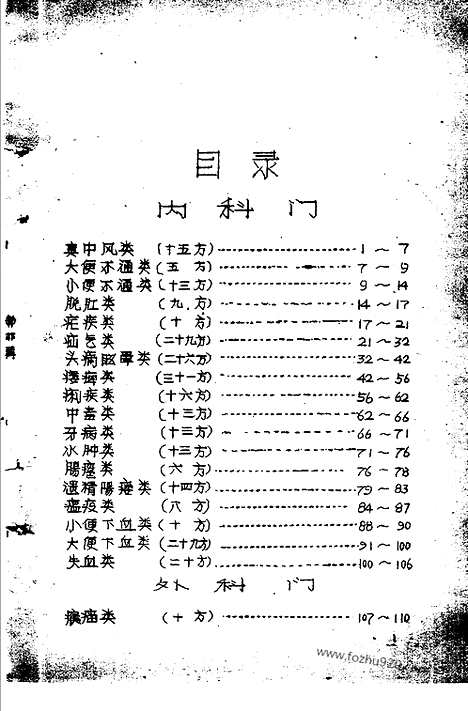 目录
内科门
真中风类(十五方)------1～7
大便不通类(五 方)------7～9
小便不通类(十三方)------9～14
脱肛类(九 方)------14～17
疟疾类(十 方)------17～21
疝气类(二十九方)------21～32
头痛眩晕类(二十六方)------32～42
(三十一方)------42～56
痢疾类(十六方)------56～62
中毒类(十三方)------62～66
牙病类(十三方)------66～71
水肿类(十三方)------71～76
(六 方)------76～78
遗精阳痿类(十四方)------79～83
瘟疫类(八 方)------84～87
小便下血类(十 方)------88～90
大便下血类(二十九方)------91～100
失血类(二十方)------100～106
外科门
类(十 方)------107～110
1
www.fozhu920